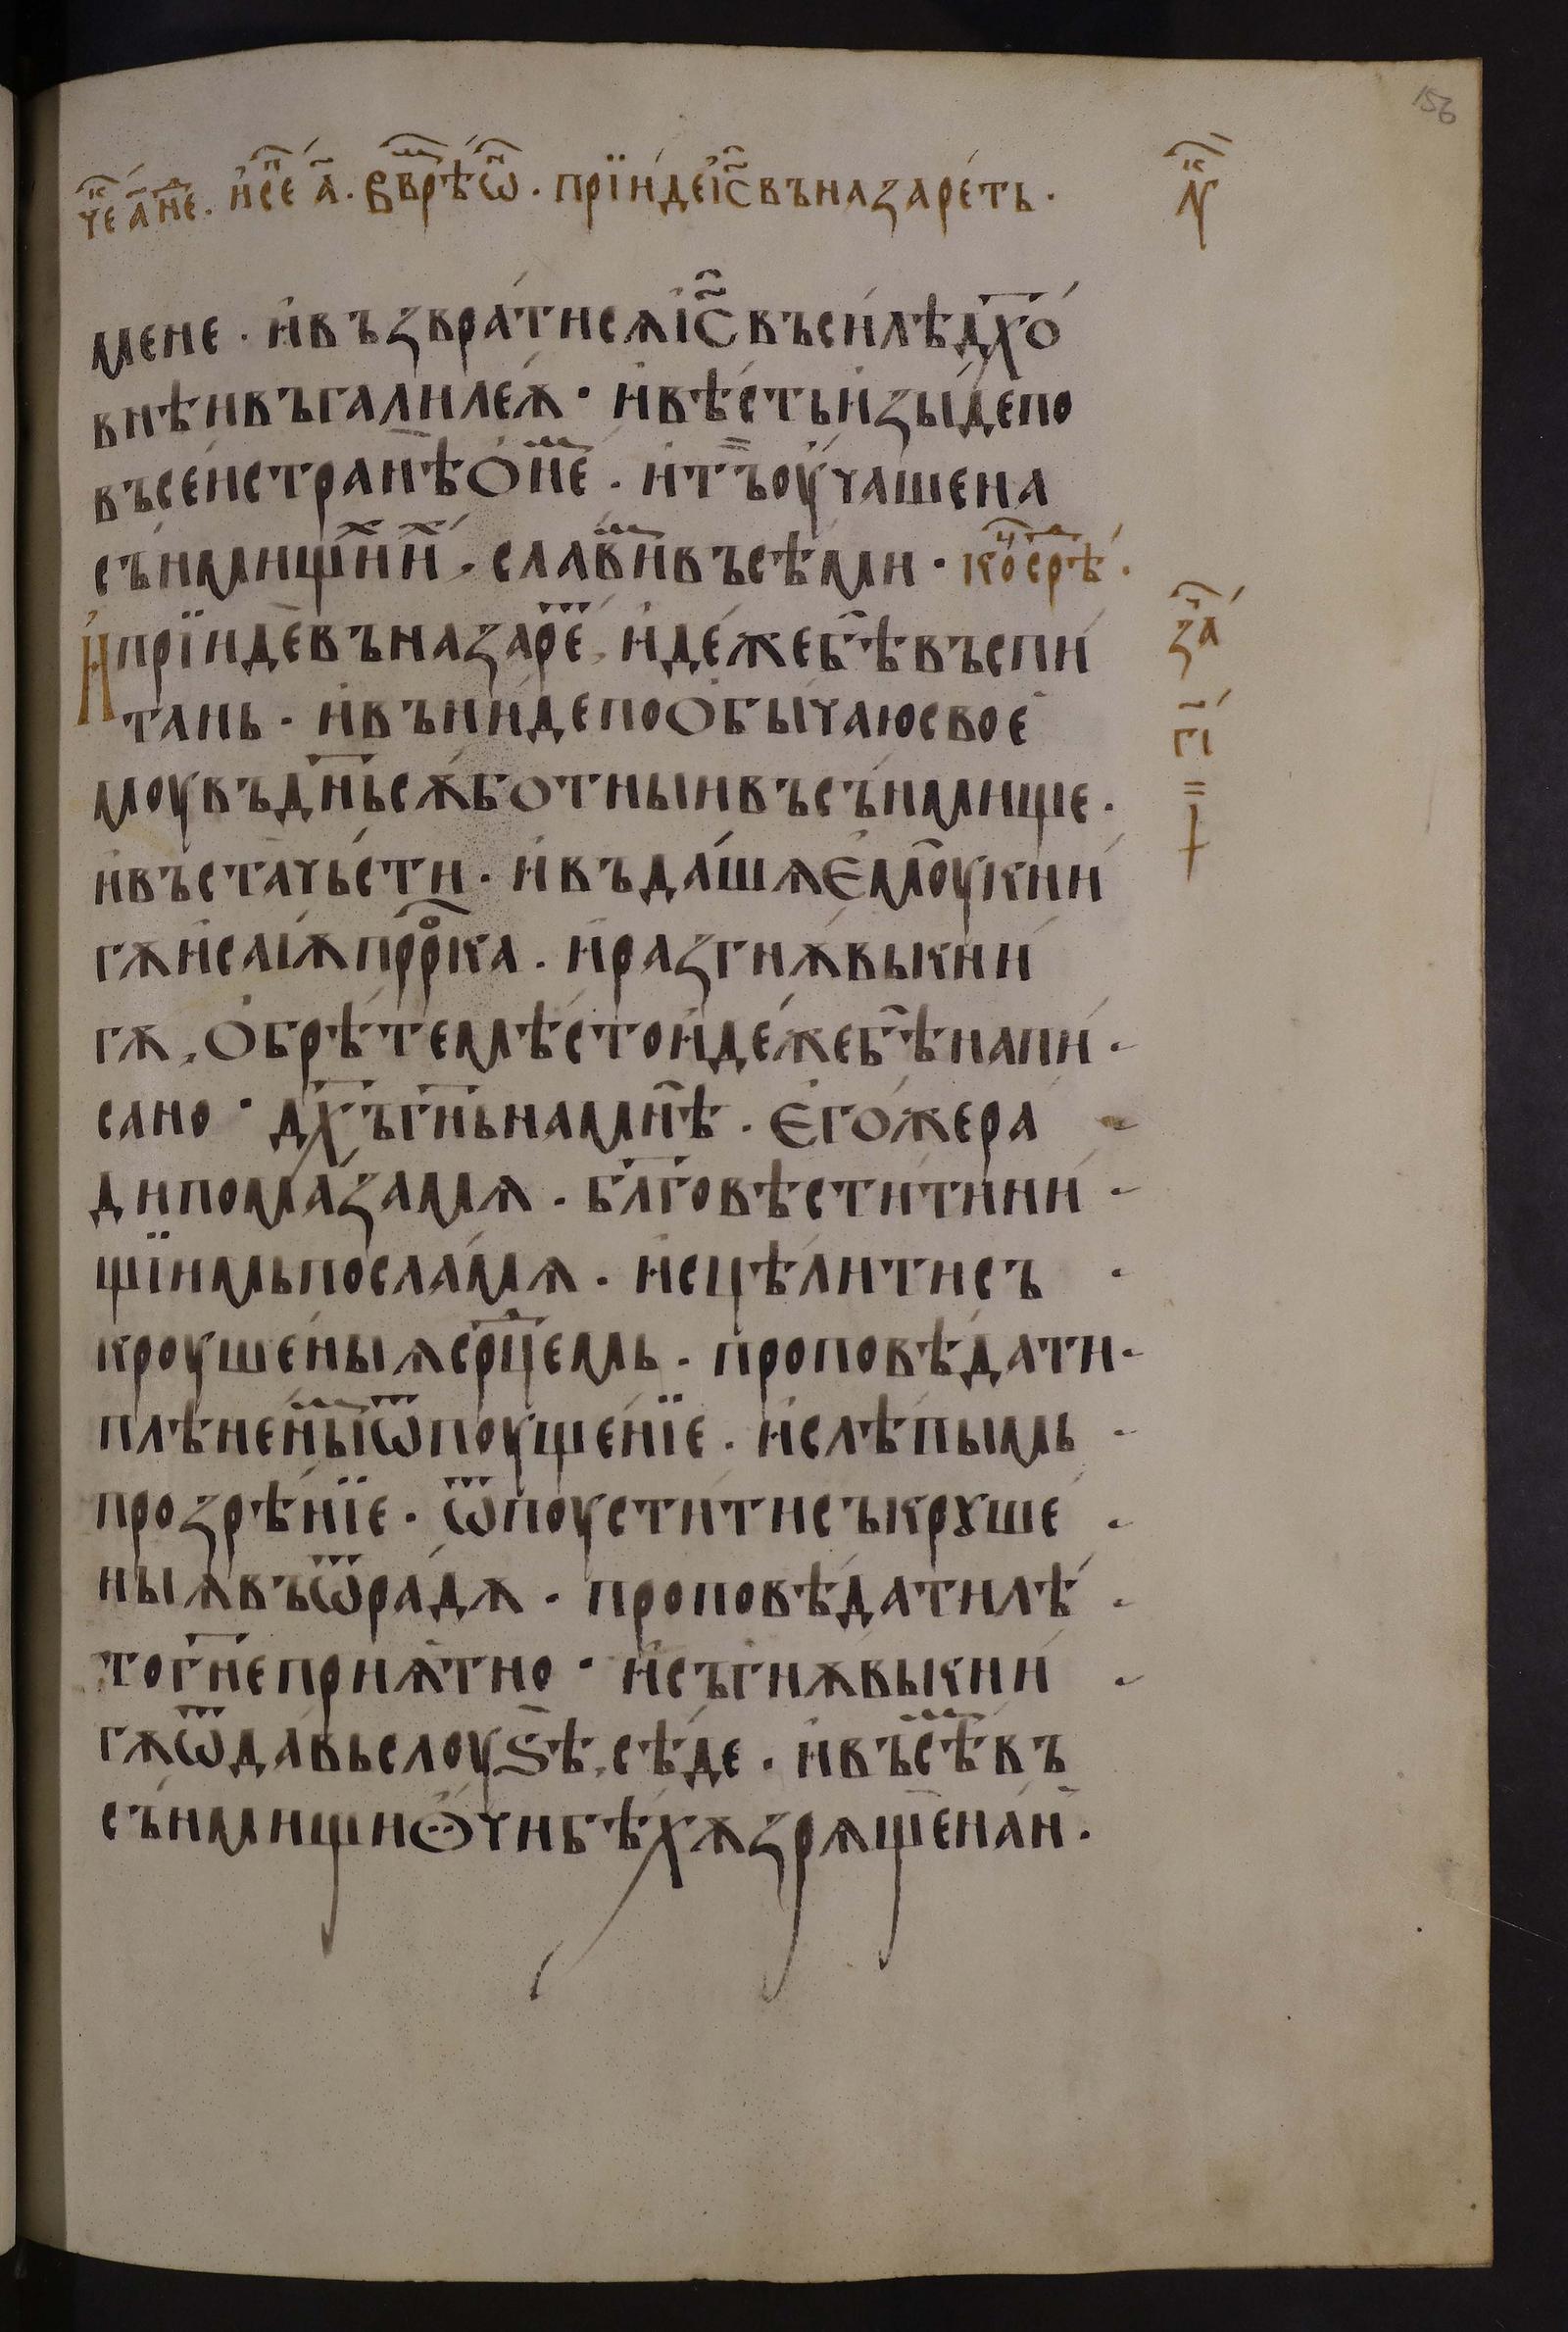 156
чⷦ҇е а҃ не҇ⷣ. и҆сⷫ҇е а҃. в̾врⷨѣ҇ ѡ҆ⷩ҇. прїи́де і҆с҃ въ назаре́ть.
мене. и҆възврати́сѧ і҆с҃ въси́лѣ дх҃о́
внѣи въгалиле́ѫ. и҆вѣ́сть и҆зы́де по
въсе́и странѣ ѻ҆не́ⷨ. и҆тъ оу҆чаше на
съни́мищиⷯ иⷯ, славиⷨ въсѣ́ми. коⷰ҇ срѣⷣ.
И҆прїи́де въназаре́ⷮ, и҆де́же бѣ въспи́
тань. и҆въни́де по ѻ҆бы́чаю свое
моу въдн҃ь сѫ́ботныи въсъ́нмище.
и҆въста чьсти. и҆въда́шѧ є҆моу кни́
гѫ и҆саі́ѫ прⷪ҇рка. и҆разгнѫ́вь кни́
гѫ, ѻ҆брѣ́те мѣ́сто и҆де́же бѣ напи́
сано. дх҃ъ гн҃ь намнѣ̀. є҆го́же ра
ди пома́за мѧ. бл҃говѣсти́ти ни́
щїимь посла́ мѧ. и҆сцѣли́ти съ
кроуше́ныѧ срⷣцемь. проповѣ́дати
плѣне́ныⷨ ѿпоуще́нїе. и҆слѣпы́мь
прозрѣ́нїе. ѿпоусти́ти съкрꙋше
ныѧ въѿра́дѫ. проповѣ́дати лѣ́
то гн҃е прия́тно. и҆съгнѫ́вь кни́
гѫ ѿда́вь слоуѕѣ̀, сѣ́де. и҆въсѣ́ⷨ въ
съ́нмищи ѻ҆́чи бѣ́хѫ зрѧ́ще на́нь.
заⷱ҇
г҃і